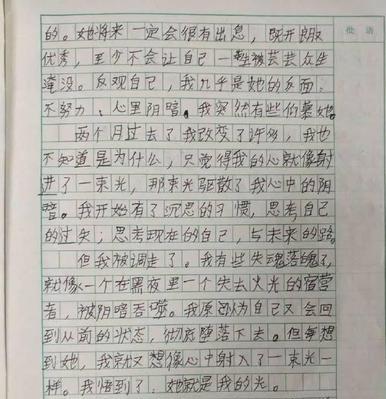 批 语
的。她将来一定会很有出息，既开朗又
优秀，至少不会让自己一生被芸芸众生
淹没。反观自己，我几乎是她的反面：
不努力、心里阴暗。我突然有些仰慕她。
两个月过去了我改变了许多，我也
不知道是为什么，只觉得我的心就像射
进了一束光，那束光驱散了我心中的阴
暗。我开始有了沉思的习惯，思考自己
的过失；思考现在的自己，与未来的路。
但我被调走了。我有些失魂落魄了，
就像一个在黑夜里一个失去火光的宿营
者，被阴暗吞噬。我原以为自己又会回
到从前的状态，彻底堕落下去。但每想
到她，我就又想像心中射入了一束光一
样。我悟到了，她就是我的光。